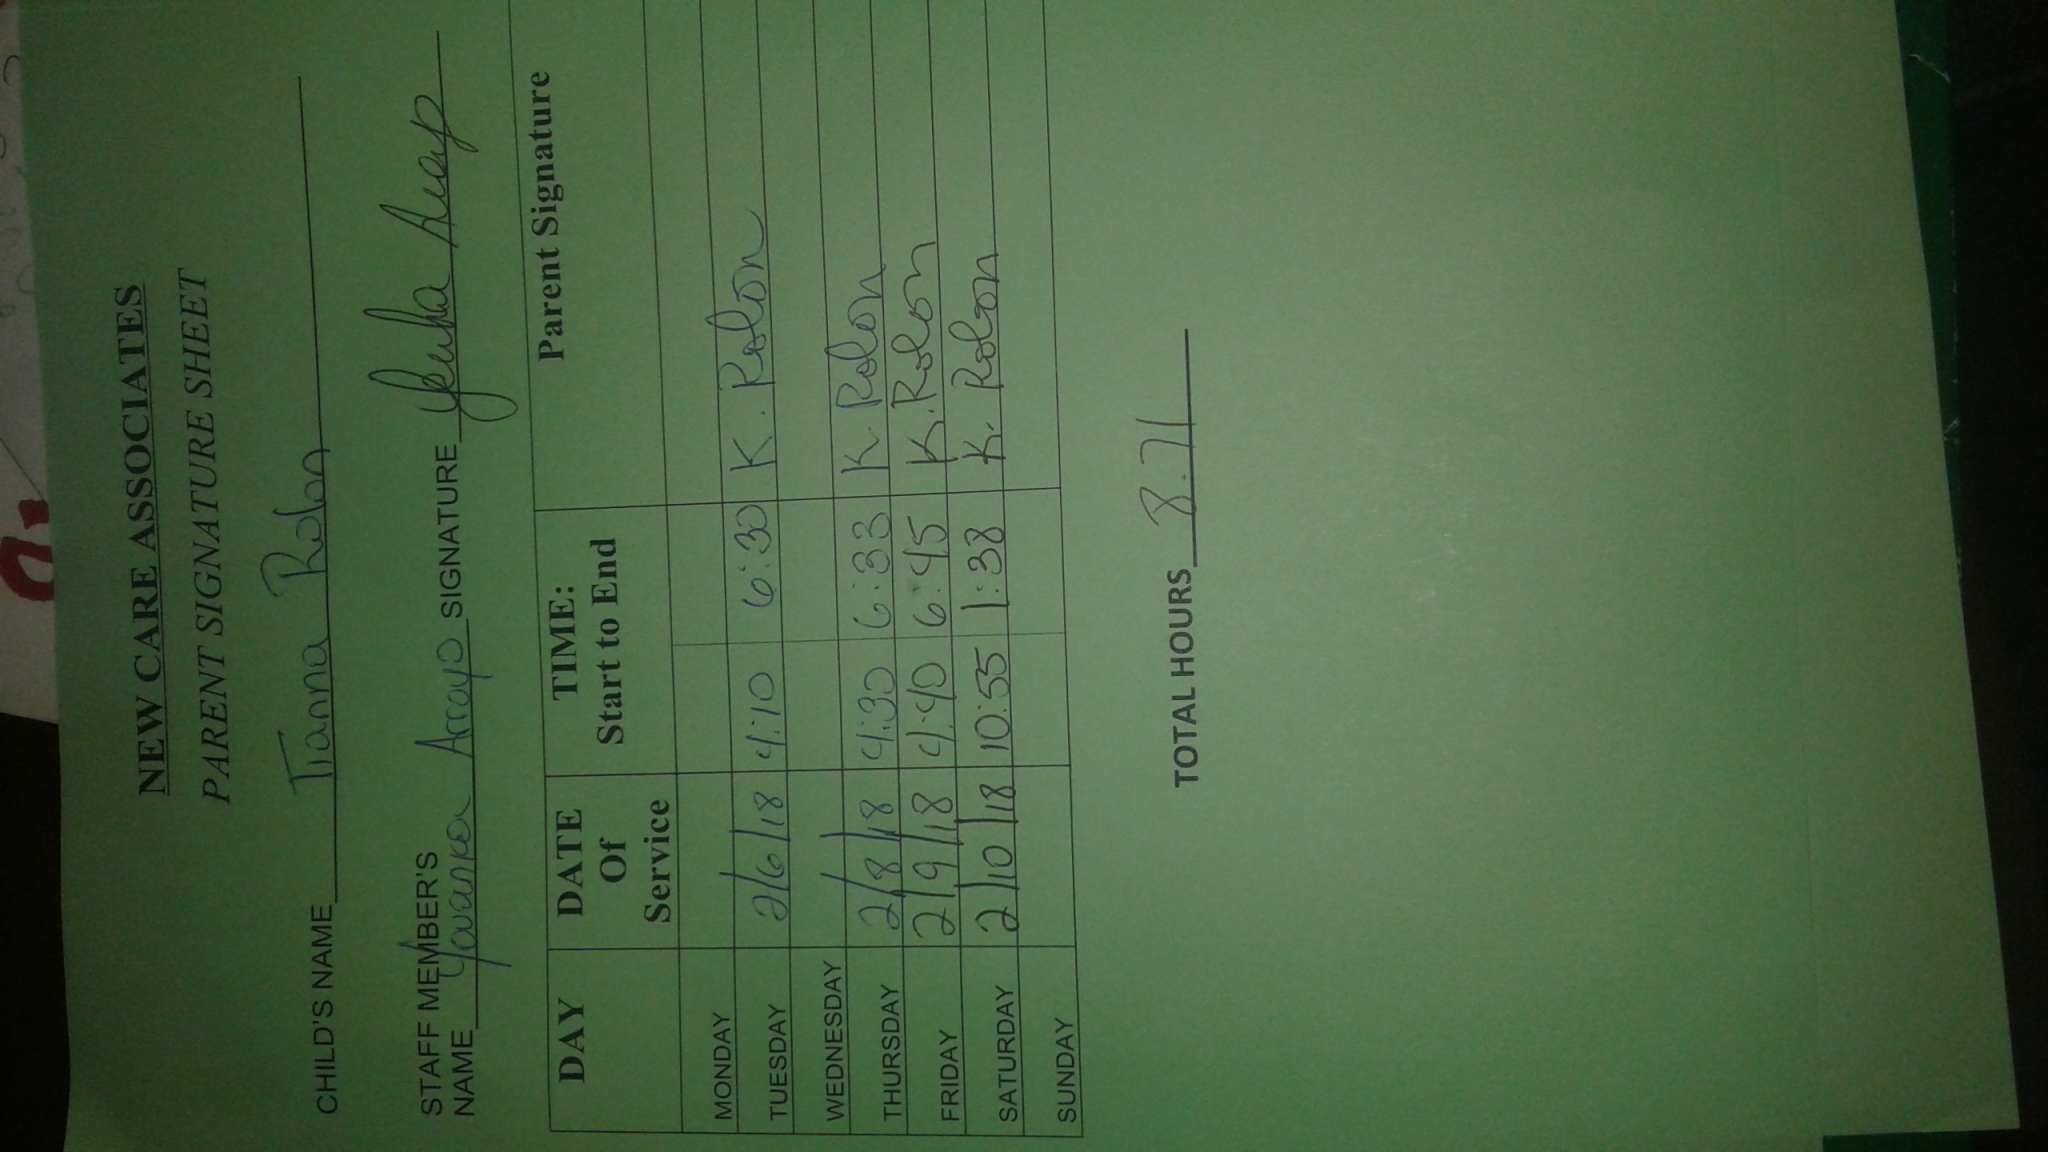 NEW CARE ASSOCIATES
PARENT SIGNATURE SHEET
CHILD'S NAME Tianna Rolon
STAFF MEMBER'S
NAME Arroyo SIGNATURE
DAY DATE Of Service TIME: Start to End Parent Signature
MONDAY
TUESDAY 2/6/18 4:10 6:30 K. Rolon
WEDNESDAY
THURSDAY 2/8/18 4:30 6:33 K. Rolon
FRIDAY 2/9/18 4:40 6:45 K. Rolon
SATURDAY 2/10/18 10:55 1:38 K. Rolon
SUNDAY
TOTAL HOURS 8.71